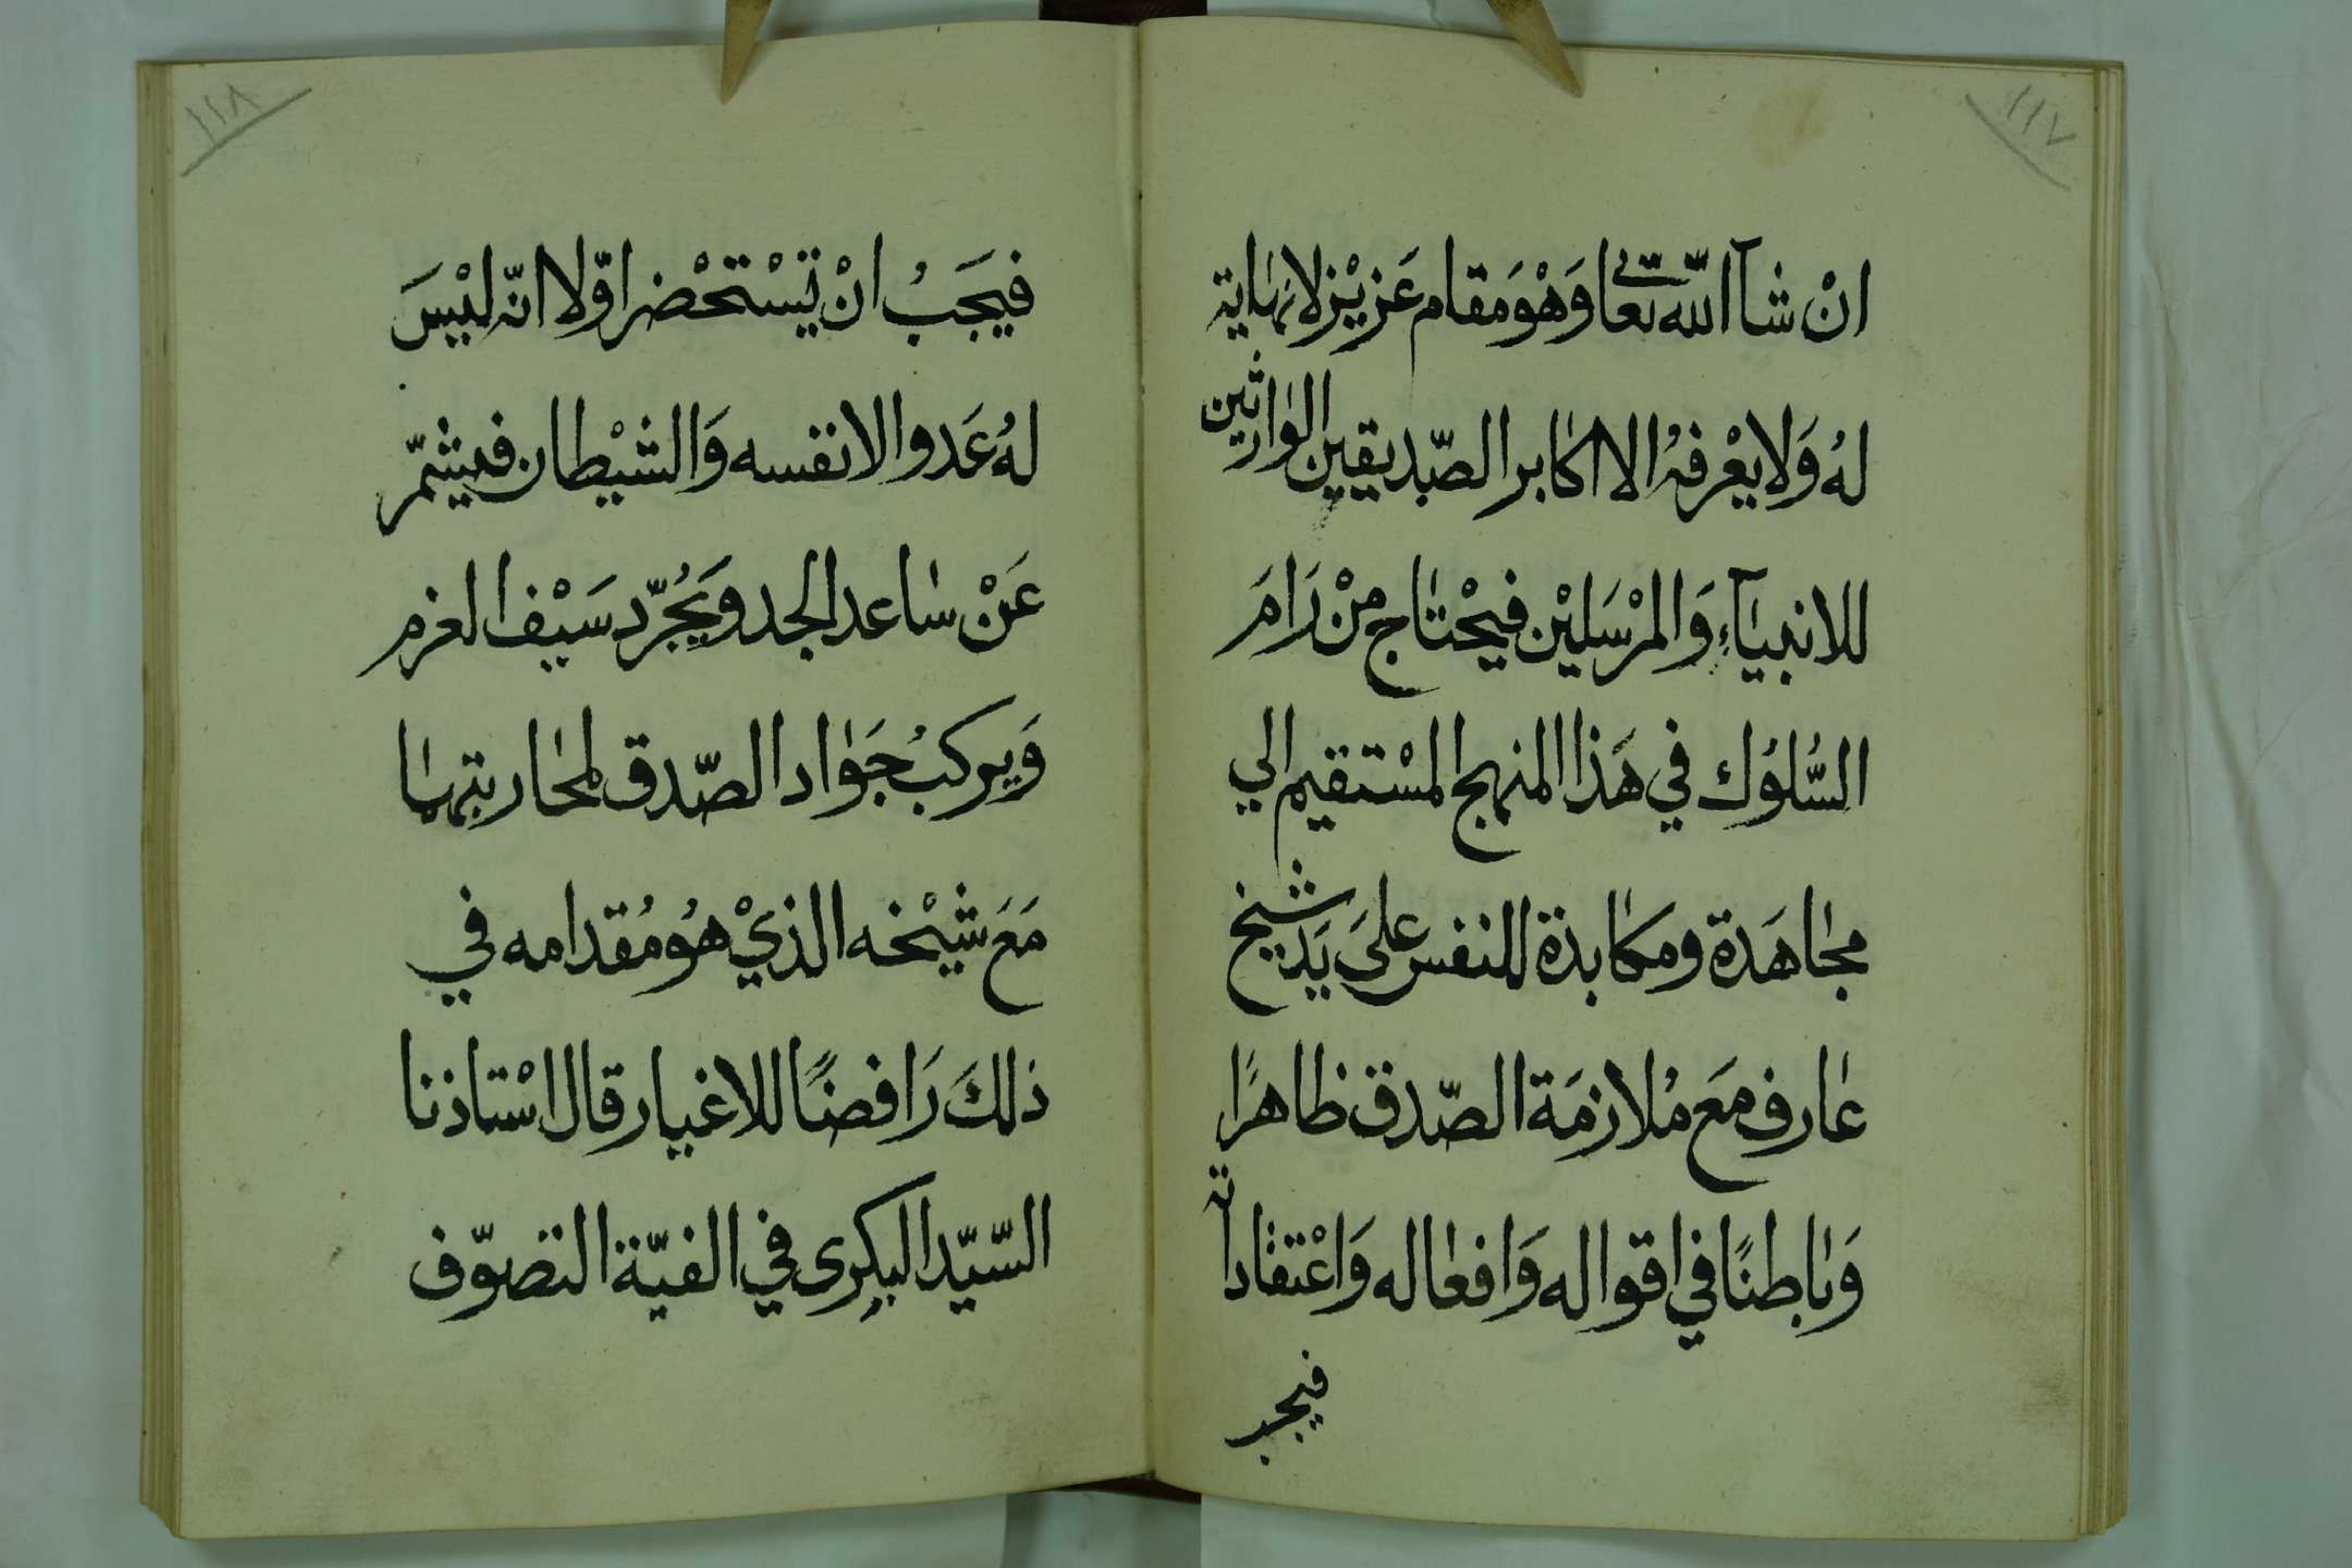 ١١٧
انْ شآ اللّه تعالى وَهْوَ مَقام عَزيْز لا نهاية
لهُ وَلا يعْرفهُ الا اكابر الصّديقين الوارثين
للانبيآءِ وَالمرْسَليْن فيحْتاج منْ رَامَ
السُّلوُك في هَذا المنهج المسْتقيم الي
مجاهَدة ومكابدة للنفس علىَ يَد شيخ
عارف مَع مُلازمَة الصّدق ظاهرًا
وَباطنًا في اقواله وَافعاله وَاعْتقاداته
فيجب
١١٨
فيجَبُ انْ يَسْتحْضر اوّلا انّه ليْسَ
لهُ عَدو الا نفسه وَالشيْطان فيشمّر
عَنْ ساعد الجد ويَجُرّد سَيْف العزم
وَيركبُ جَوَاد الصّدق لمحاربتهما
مَعَ شيْخه الذيْ هوُ مُقدامه في
ذلكَ رَافضًا للاغيار قال اسْتاذنا
السّيّد البكرى في الفيّة التصوّف